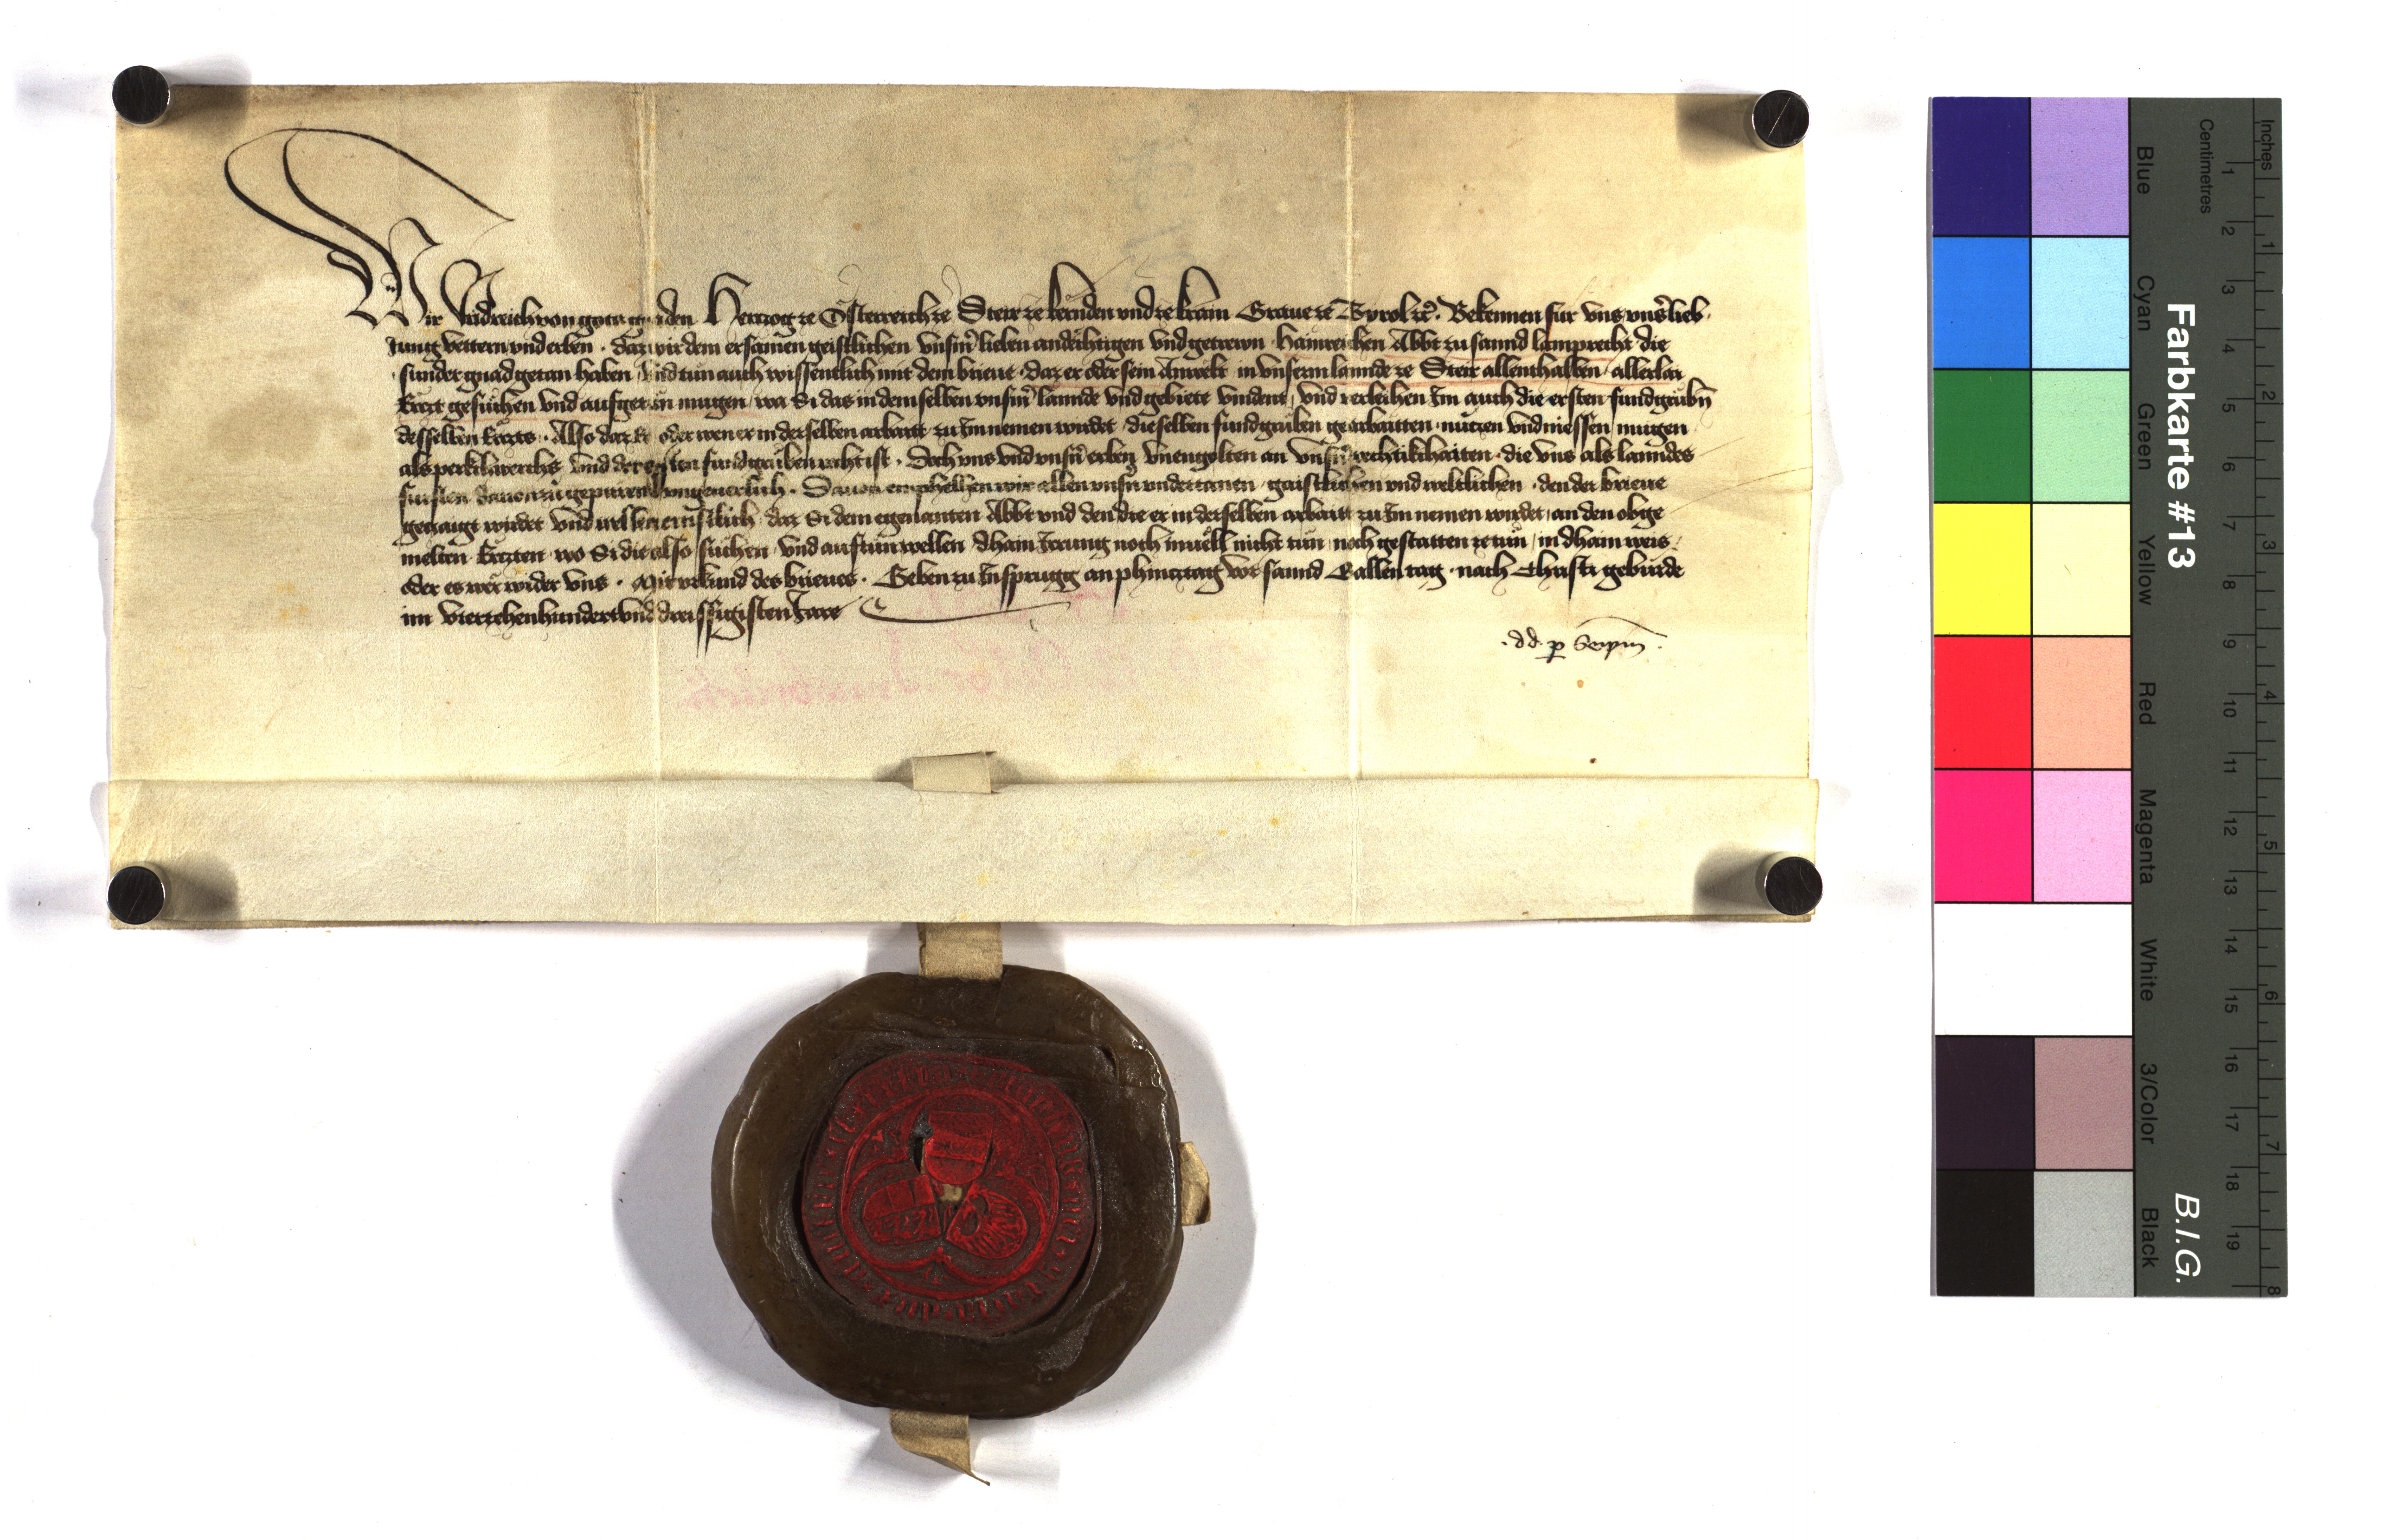 Wir Fridreich von gots gnaden Herczog ze Österreich ze Steir ze kernden vnd ze krain Graue ze Tyrol ꝛc. Bekennen für vns vnsˀ lieb
Jung vettern vnd erben . daz wir dem ersamen geistlichen vnsm̄ lieben andechtigen vnd getrewn Hainreichen Abbt zu sannd lamprecht die
sunder gnad getan haben vnd tun auch wissentlich mit dem brieue . daz er oder sein Anwelt in vnserm lannde ze Steir allenthalben allerlay
Erczt gesuchen vnd aufgetun mugen wa Si das in demselben vnsm̄ lannde vnd gebiete vindent, vnd verleihen Im auch die ersten fundgrubn̄
desselben Erczts . Also daz Er oder wen er in derselben arbaitt zu Im nemen wirdet dieselben fundgruben gearbaitten nuczen vnd niessen mugen
als perkchwerchs vnd der ersten fundgruben recht ist . Doch vns vnd vnsn̄ erben vnengolten an vnsn̄ rechtikchaiten . die vns als lanndes
fursten dauon zu gepuren vngeuerlich . Dauon emphelhen wir allen vnsn̄ vndertanen . geistlichen vnd weltlichen . den der brieue
geczaigt wirdet vnd wellen ernstlich daz Si dem egenanten Abbt vnd den die er in derselben arbaitt zu Im nemen wirdet, an den obge
melten Erczten wo Si die also suchen vnd auftun wellen dhain Irrung noch inuell nicht tun noch gestatten ze tun in dhain weis
oder es wer wider vns . Mit vrkund des brieues . Geben zu Insprugg an phincztag vor sannd Gallen tag . nach Christi geburde
im vierczehenhundert vnd dreissigisten Jare
. dd. p
Farbkarte #13
B.I.G.
Blue
Cyan
Green
Yellow
Red
Magenta
White
3/Color
Black
Centimetres
1 2 3 4 5 6 7 8 9 10 11 12 13 14 15 16 17 18 19
Inches
1 2 3 4 5 6 7 8